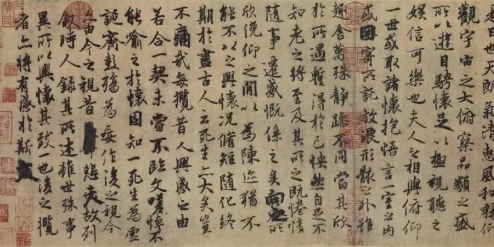 是日也天朗氣清惠風和暢仰
觀宇宙之大俯察品類之盛
所以遊目騁懷足以極視聽之
娛信可樂也夫人之相與俯仰
一世或取諸懷抱悟言一室之內
或因寄所託放浪形骸之外雖
趣舍萬殊靜躁不同當其欣
於所遇暫得於己怏然自足不
知老之將至及其所之既惓情
隨事遷感慨係之矣向之所
欣俛仰之間以為陳迹猶不
能不以之興懷況脩短隨化終
期於盡古人云死生亦大矣豈
不痛哉每攬昔人興感之由
若合一契未嘗不臨文嗟悼不
能喻之於懷固知一死生為虛
誕齊彭殤為妄作後之視今
亦由今之視昔悲夫故列
敘時人錄其所述雖世殊事
異所以興懷其致一也後之攬
者亦將有感於斯文